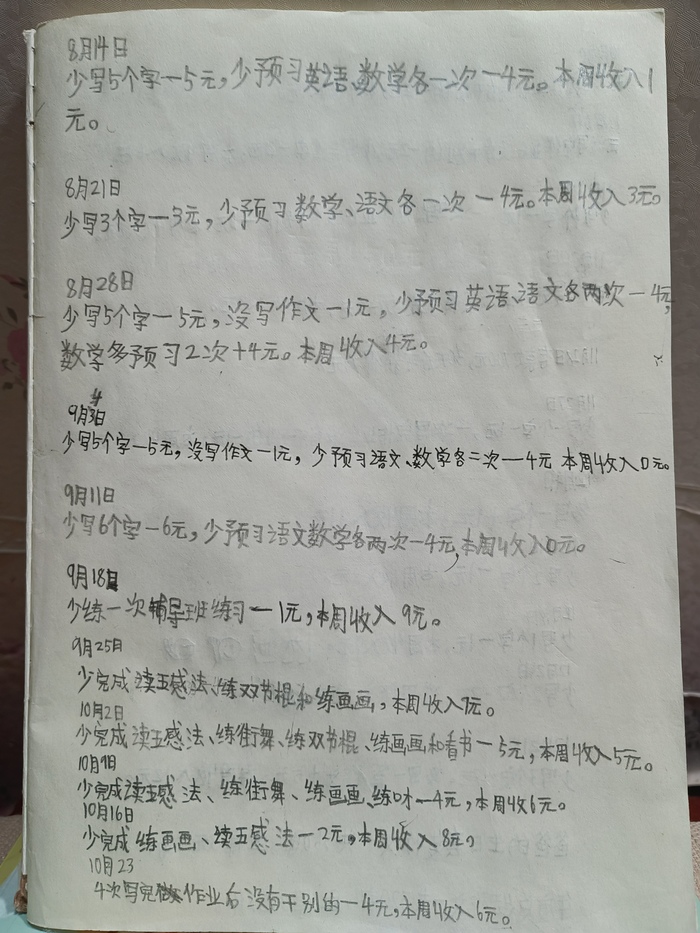 8月14日
少写5个字一5元，少预习英语、数学各一次一4元。本周收入1
元。
8月21日
少写3个字一3元，少预习数学、语文各一次一4元。本周收入3元。
8月28日
少写5个字一5元，没写作文一1元，少预习英语、语文各两次一4元，
数学多预习2次+4元。本周收入4元。
9月4日
少写5个字一5元，没写作文一1元，少预习语文、数学各二次一4元 本周收入0元。
9月11日
少写6个字一6元，少预习语文数学各两次一4元，本周收入0元。
9月18日
少练一次辅导班练习一1元，本周收入9元。
9月25日
少完成读五感法、练双节棍和练画画，本周收入7元。
10月2日
少完成读五感法、练街舞、练双节棍、练画画和看书一5元，本周收入5元。
10月9日
少完成读五感法、练街舞、练画画、练口才一4元，本周收6元。
10月16日
少完成练画画、读五感法一2元，本周收入8元。
10月23
4次写完作业后没有干别的一4元，本周收入6元。